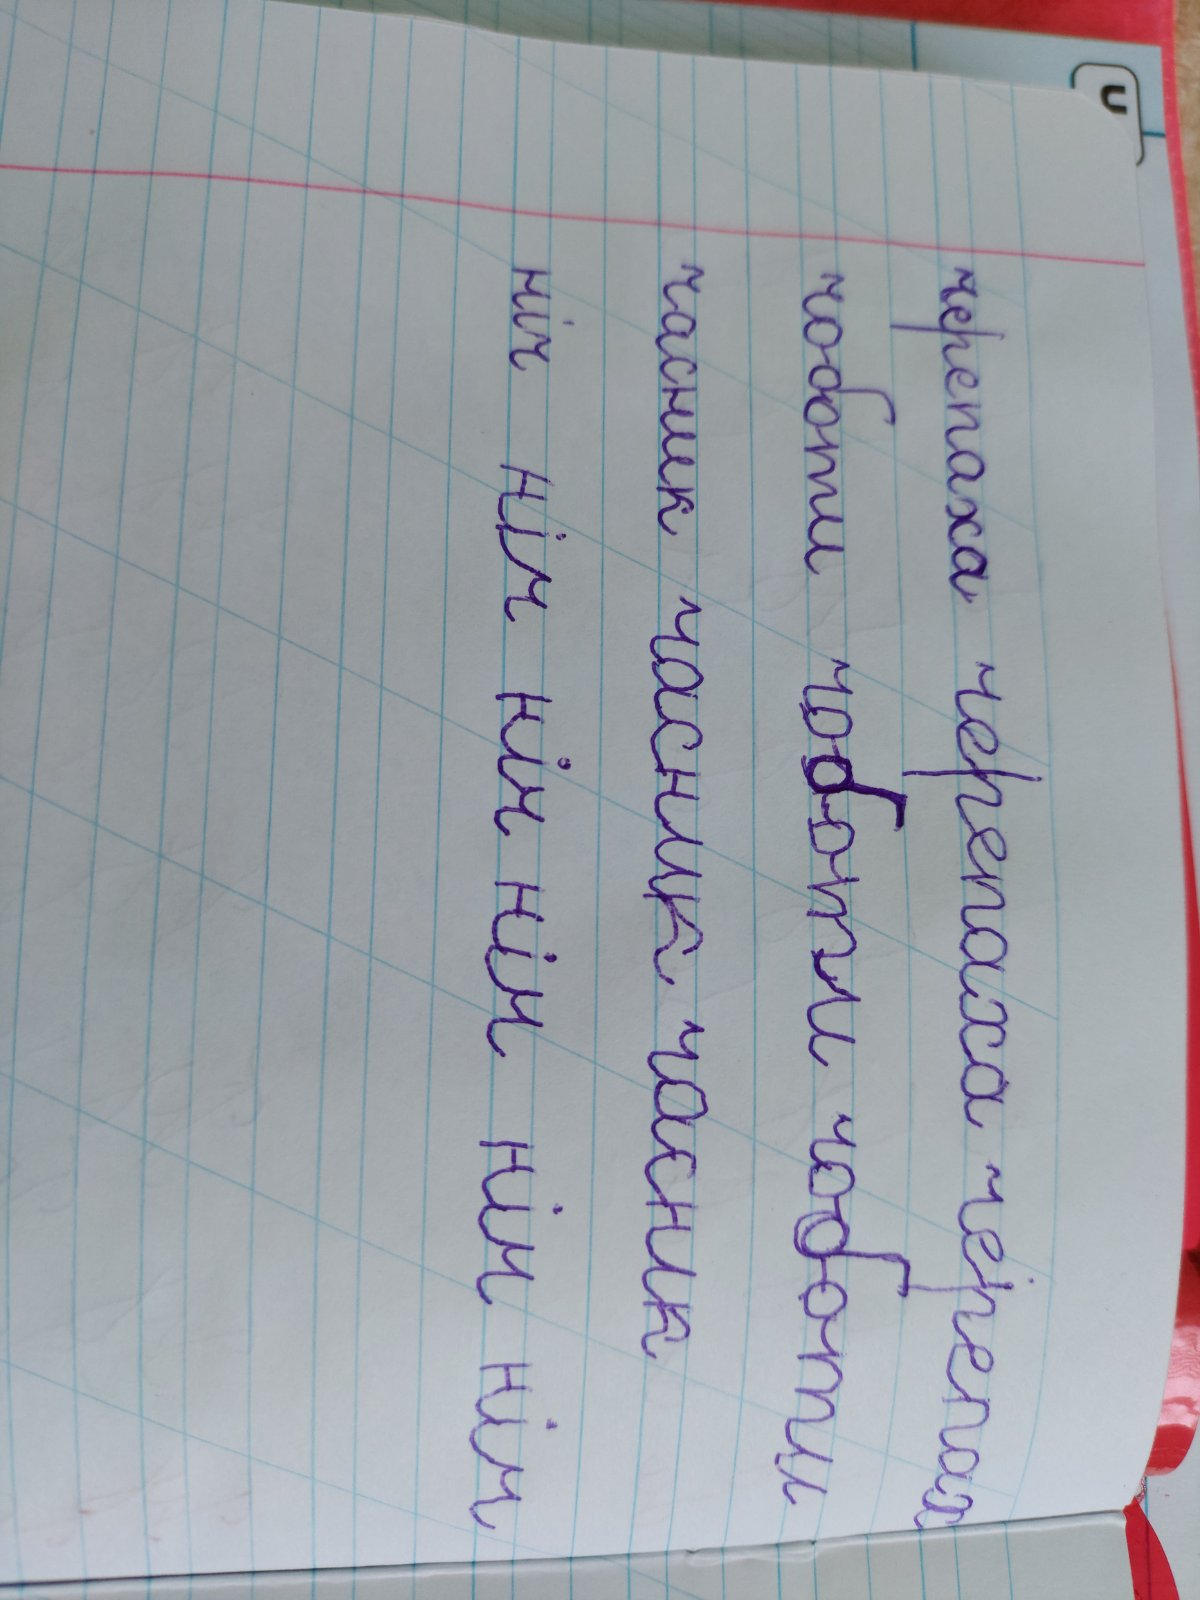 черепаха черепаха черепах
чоботи чоботи чоботи
часник часник часник
ніч ніч ніч ніч ніч ніч